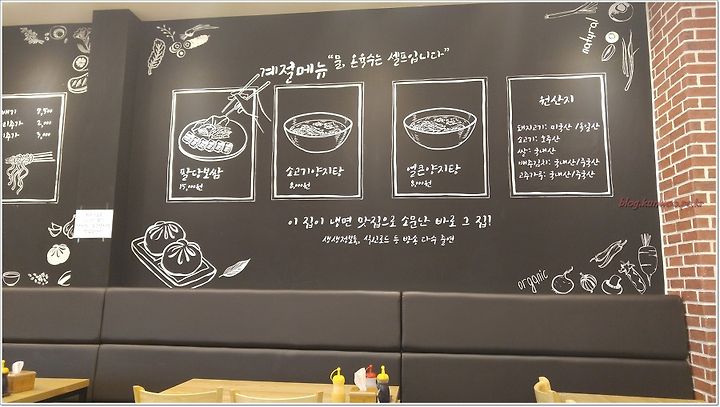 계절메뉴 "물, 온육수는 셀프입니다"
7,500
2,000
3,000
맛당보쌈
15,000원
소고기양지탕
8,000원
얼큰양지탕
8,000원
원산지
돼지고기: 미국산/독일산
소고기: 호주산
쌀: 국내산
배추김치: 국내산/중국산
고추가루: 국내산/중국산
이 집이 냉면 맛집으로 소문난 바로 그 집!
생생정보통, 식신로드 등 방송 다수 출연
natural
organic